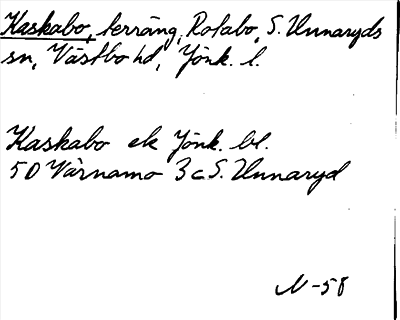 Kaskabo, terräng, Rotabo, S. Unnaryds
sn, Västbo hd, Jönk. l.
Kaskabo ek Jönk. bl.
5D Värnamo 3c S. Unnaryd
N-58